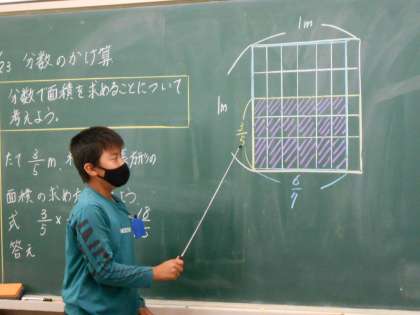 23 分数のかけ算
分数で面積を求めることについて
考えよう。
たて 3/5 m、
面積の求め
式 3/5 ×
答え
1m
1m
3/5
6/7